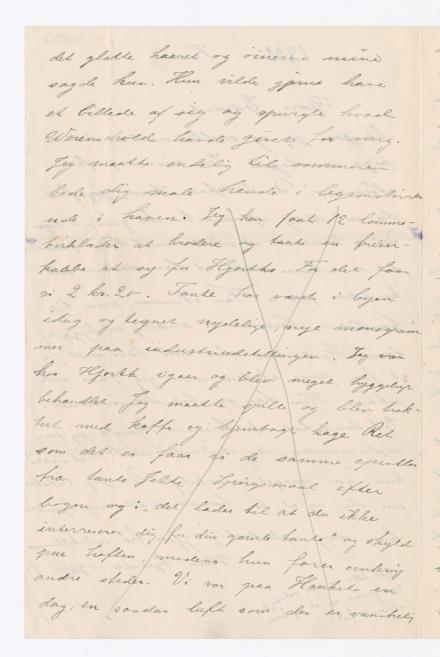 det glatte haaret og öinene mine
sagde hun. Hun vilde gjerne have
et billede af sig og spurgte hvad
Werenskiold havde givet for mig.
Jeg maatte endelig til sommeren
bede dig male hende i legemstörrelse
ude i haven. Jeg har faat 12 lomme-
törklæder at brodere og tante en friser-
kaabe at sy for Hjorths. For det faar
vi 2 kr. 20. Tante har været i byen
idag og tegnet nydelige, nye monogram-
mer paa industriudstillingen. Jeg var
hos Hjorth igaar og blev meget hyggelig
behandlet. Jeg maatte spille og blev trak-
tert med kaffe og hjembagt kage. Ret
som det er faar vi de samme
fra tante spörgsmaal efter
bogen og: "det lader til at du ikke
interreserer dig for din gamle tante" og skyld
paa hoften, medens hun farer omkring
andre steder. Vi var paa Haukeli en
dag, en saadan luft som der er vanskelig